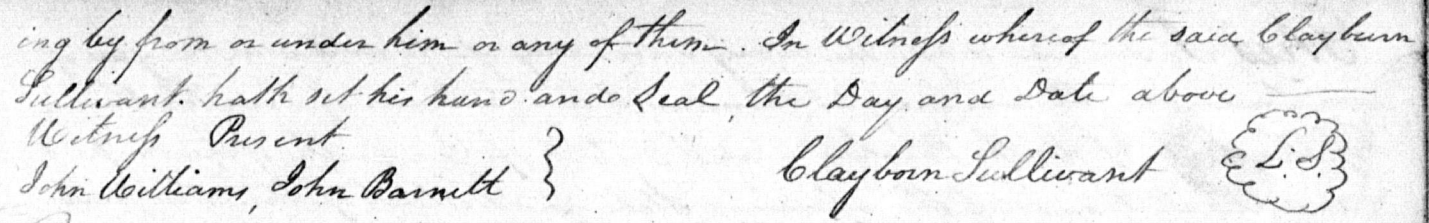 ing by from or under him or any of them. In Witness whereof the said Clayburn
Sullivant. hath set his hand and Seal, the Day and Date above
Witness Present
John Williams, John Barnett } Clayborn Sullivant L.S.